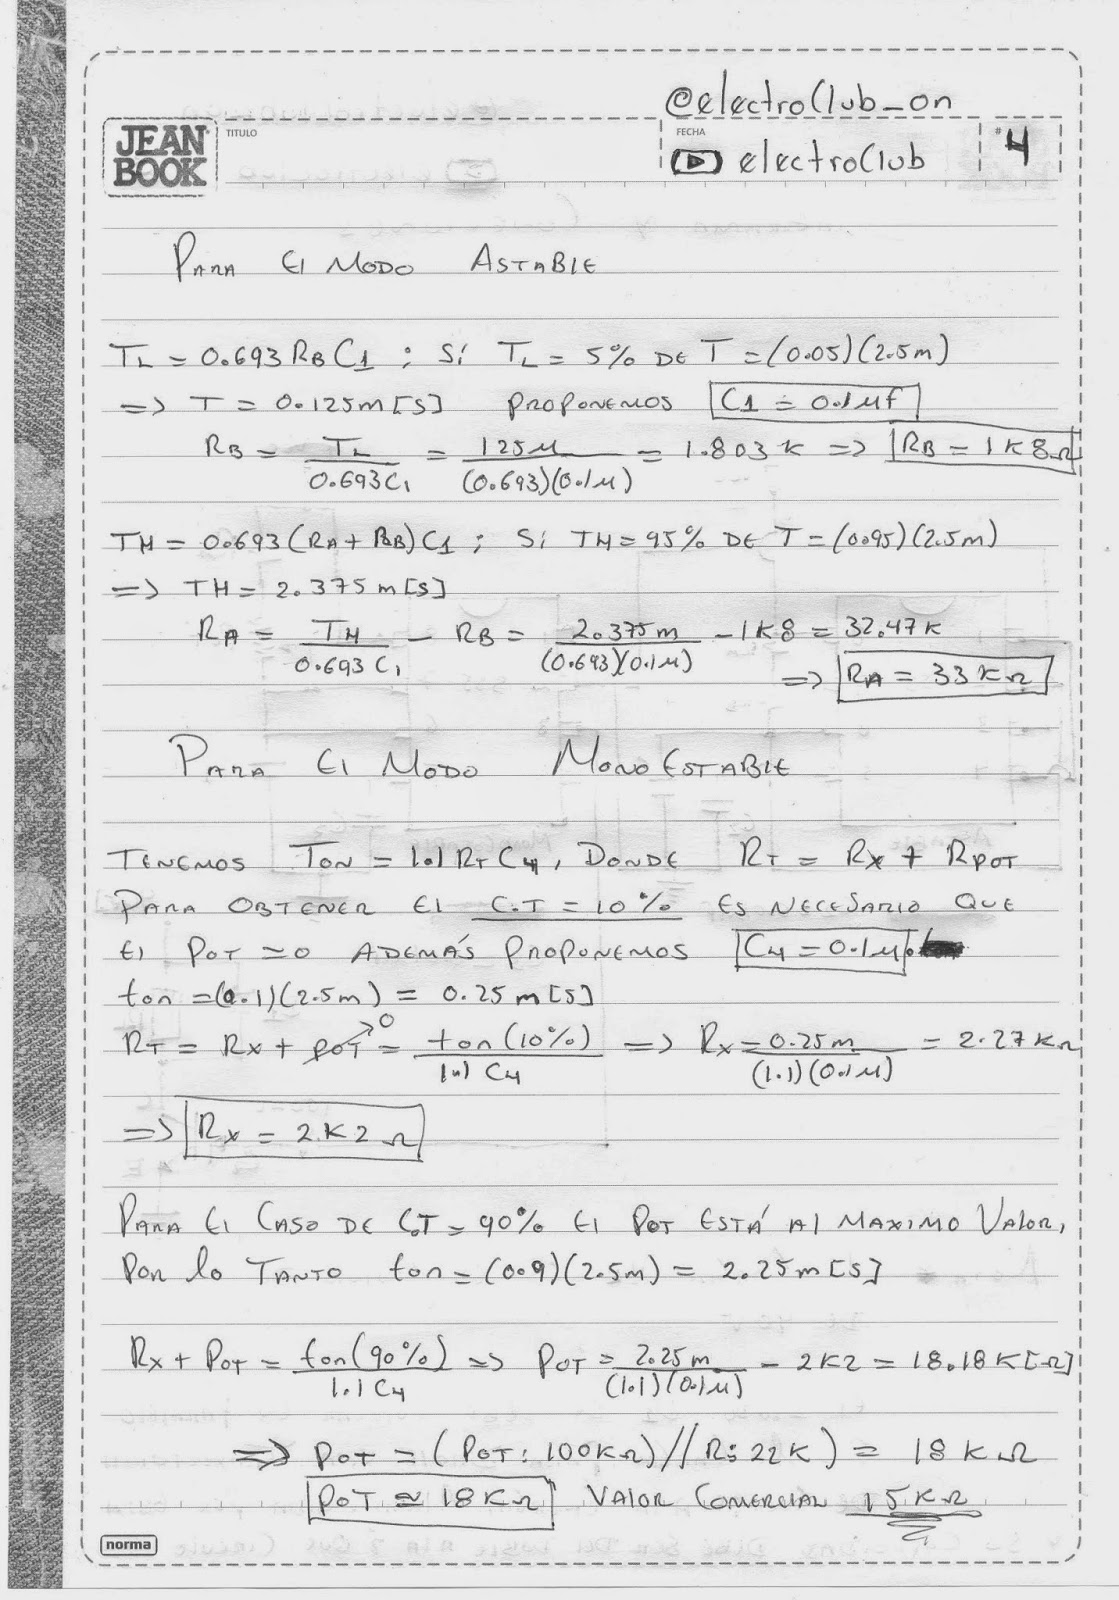 @electroClub_on
JEAN BOOK TITULO FECHA electroClub # 4
PARA El MODO ASTABlE
TL = 0.693 RB C1 ; Sí TL = 5% DE T = (0.05)(2.5m)
=> T = 0.125m[S] PROPONEMOS C1 = 0.1µf
RB = TL / 0.693C1 = 125µ / (0.693)(0.1µ) = 1.803 K => RB = 1K8Ω
TH = 0.693(RA + RB)C1 ; Sí TH = 95% DE T = (0.95)(2.5m)
=> TH = 2.375 m[S]
RA = TH / 0.693 C1 - RB = 2.375m / (0.693)(0.1µ) - 1K8 = 32.47K
=> RA = 33KΩ
PARA El MODO MONOESTABlE
TENEMOS TON = 1.1 RT C4, DONDE RT = Rx + RPOT
PARA OBTENER El C.T = 10% ES NECESARIO QUE
El POT = 0 ADEMÁS PROPONEMOS C4 = 0.1µ
ton = (0.1)(2.5m) = 0.25 m[S]
RT = Rx + POT→0 = ton(10%) / 1.1 C4 => Rx = 0.25m / (1.1)(0.1µ) = 2.27KΩ
=> Rx = 2K2Ω
PARA El CASO DE C.T = 90% El POT ESTÁ Al MAXIMO VALOR,
POR lo TANTO ton = (0.9)(2.5m) = 2.25m[S]
Rx + POT = ton(90%) / 1.1 C4 => POT = 2.25m / (1.1)(0.1µ) - 2K2 = 18.18K[Ω]
=> POT = (POT: 100KΩ) // R: 22K) = 18KΩ
POT ≃ 18KΩ VALOR COMERCIAL 15KΩ
norma